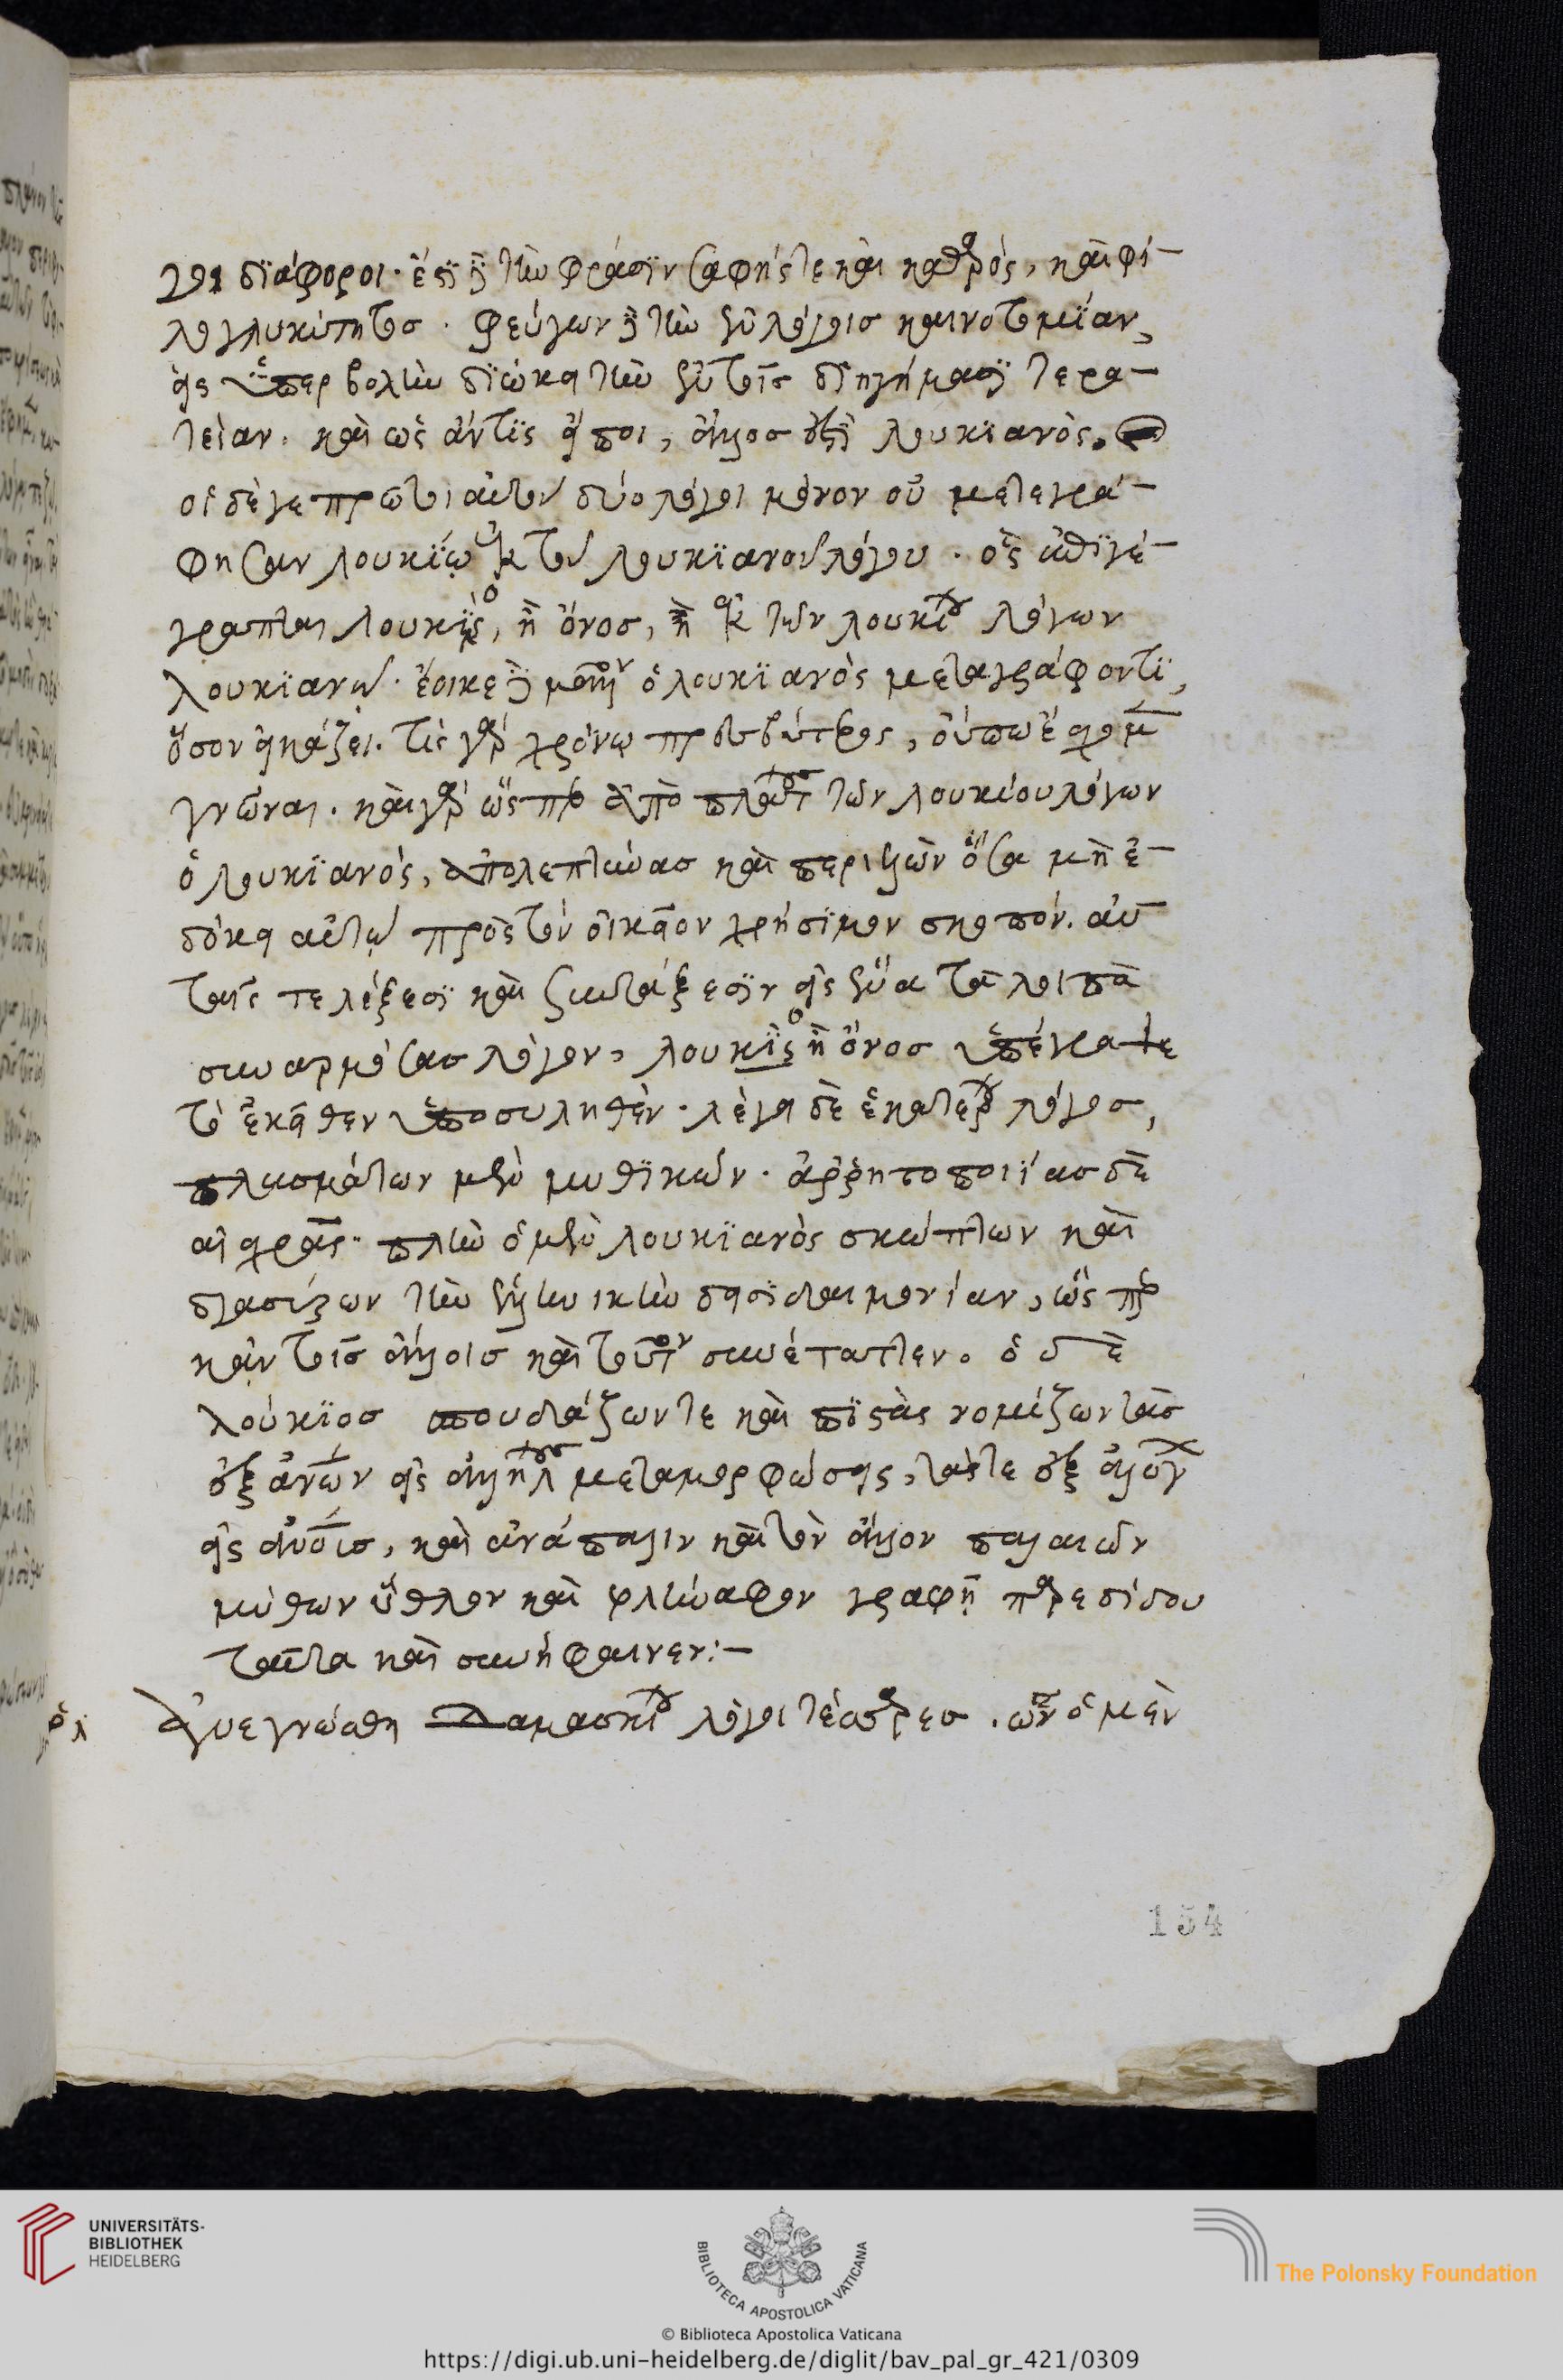 γοι διάφοροι. ἔστι δὲ τὴν φράσιν σαφής τε καὶ καθαρὸς, καὶ φί-
λος γλυκύτητος. φεύγων δὲ τὴν ἐν λόγοις καινοτομίαν,
εἰς ὑπερβολὴν διώκει τὴν ἐν τοῖς διηγήμασι τερα-
τείαν. καὶ ὡς ἄν τις εἴποι, ἄλλος ἐστὶ λουκιανός.
οἱ δέ γε πρῶτοι αὐτοῦ δύο λόγοι μόνον οὐ μετεγρά-
φησαν λουκίῳ ἐκ τοῦ λουκιανοῦ λόγου. ὃς ἐπιγέ-
γραπται λούκιος, ἢ ὄνος, ἢ ἐκ τῶν λουκίου λόγων
λουκιανῷ. ἔοικε δὲ μᾶλλον ὁ λουκιανὸς μεταγράφοντι,
ὅσον εἰκάζει. τίς γὰρ χρόνῳ πρεσβύτερος, οὔπω ἔχομεν
γνῶναι. καὶ γὰρ ὥσπερ ἀπὸ πλάτους τῶν λουκίου λόγων
ὁ λουκιανὸς, ἀπολεπτύνας καὶ περιελὼν ὅσα μὴ ἐ-
δόκει αὐτῷ πρὸς τὸν οἰκεῖον χρήσιμον σκοπόν. αὐ-
ταῖς τε λέξεσι καὶ συντάξεσιν εἰς ἕνα τὰ λοιπὰ
συναρμόσας λόγον, λούκιος ἢ ὄνος ἐπέγραψε
τὸ ἐκεῖθεν ὑποσυληθέν. λέγει δὲ ἑκατέρου λόγος,
πλασμάτων μὲν μυθικῶν. ἀρρητοποιίας δὲ
αἰσχρᾶς. πλὴν ὁ μὲν λουκιανὸς σκώπτων καὶ
διασύρων τὴν ἑλληνικὴν δεισιδαιμονίαν, ὥσπερ
κἀν τοῖς ἄλλοις καὶ τοῦτον συνέταττεν. ὁ δὲ
λούκιος σπουδάζων τε καὶ πιστὰς νομίζων τὰς
ἐξ ἀνθρώπων εἰς ἀλλήλους μεταμορφώσεις, τάς τε ἐξ ἀλόγων
εἰς ἀνθρώπους, καὶ ἀνάπαλιν καὶ τὸν ἄλλον παλαιῶν
μύθων ὕθλον καὶ φλήναφον γραφῇ παρεδίδου
ταῦτα καὶ συνήφαινεν:-
ρλ ἀνεγνώσθη δαμασκίου λόγοι τέσσαρες. ὧν ὁ μὲν
154
UNIVERSITÄTS-
BIBLIOTHEK
HEIDELBERG
BIBLIOTECA APOSTOLICA VATICANA
The Polonsky Foundation
© Biblioteca Apostolica Vaticana
https://digi.ub.uni-heidelberg.de/diglit/bav_pal_gr_421/0309